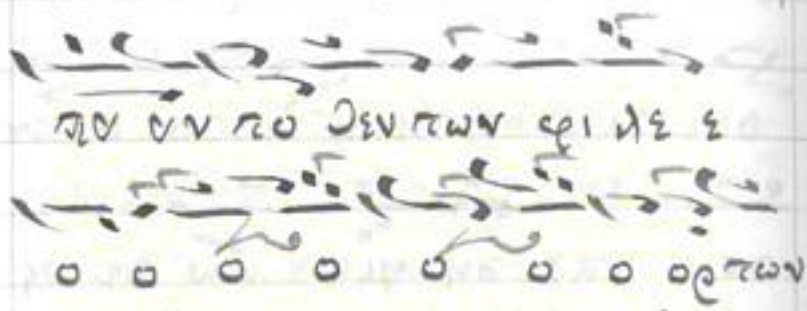 πα αν το θεν των φι λε ε
ο ο ο ο ο ο ο ορ των